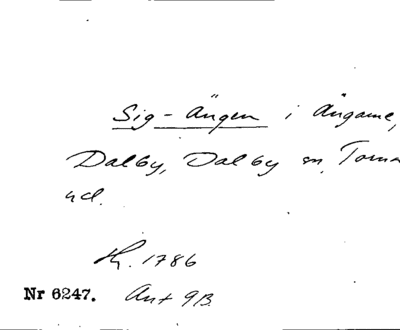 Sig-Ängen i Ängarne,
Dalby, Dalby sn, Torna
hd.
1786
Nr 6247. Ant 9B.